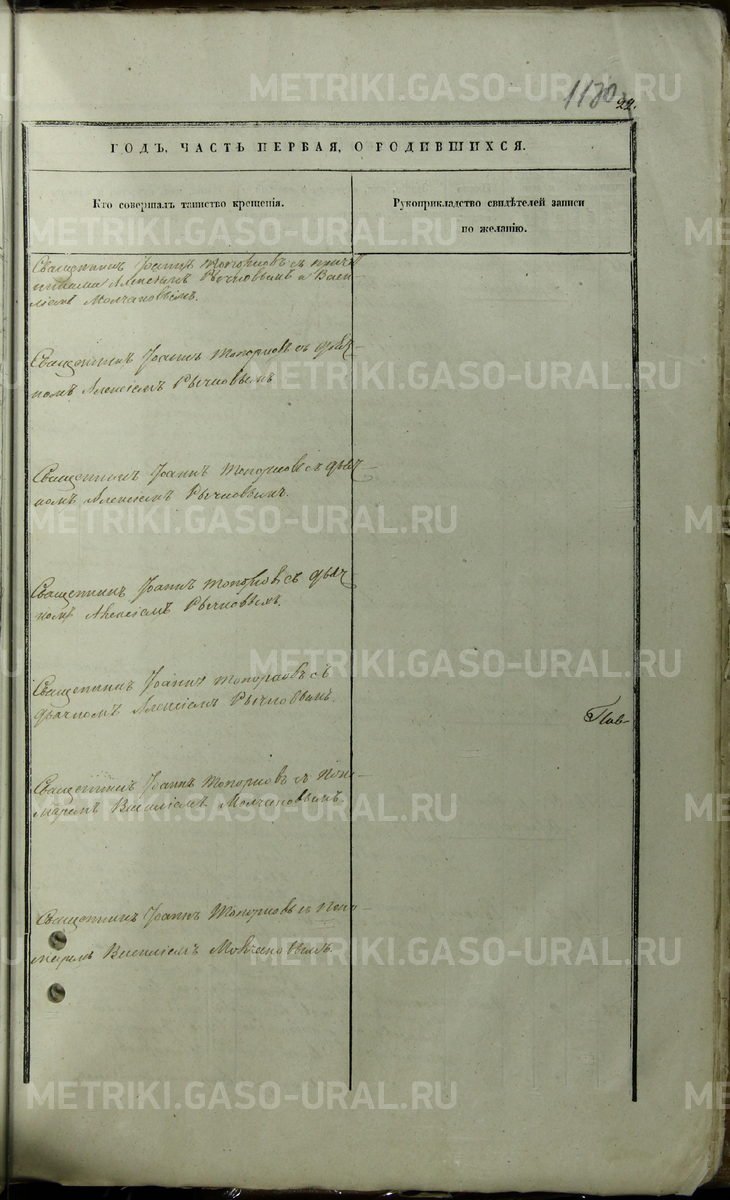 1130
22.
ГОДЪ, ЧАСТЬ ПЕРВАЯ, О РОДИВШИХСЯ.
Кто совершалъ таинство крещенія.
Рукоприкладство свидѣтелей записи
по желанію.
Священникъ Іоаннъ Топорковъ съ прич
тниками Алексіемъ Рычковымъ и Васи
ліемъ Молчановымъ.
Священникъ Іоаннъ Топорковъ съ дьяч
комъ Алексіемъ Рычковымъ
Священникъ Іоаннъ Топорковъ съ дьяч
комъ Алексіемъ Рычковымъ.
Священникъ Іоаннъ Топорковъ съ дьяч
комъ Алексіемъ Рычковымъ.
Священникъ Іоаннъ Топорковъ съ
дьячкомъ Алексіемъ Рычковымъ.
Пав-
Священникъ Іоаннъ Топорковъ съ Поно-
маремъ Василіемъ Молчановымъ.
Священникъ Іоаннъ Топорковъ съ Поно-
маремъ Василіемъ Молчановымъ.
METRIKI.GASO-URAL.RU